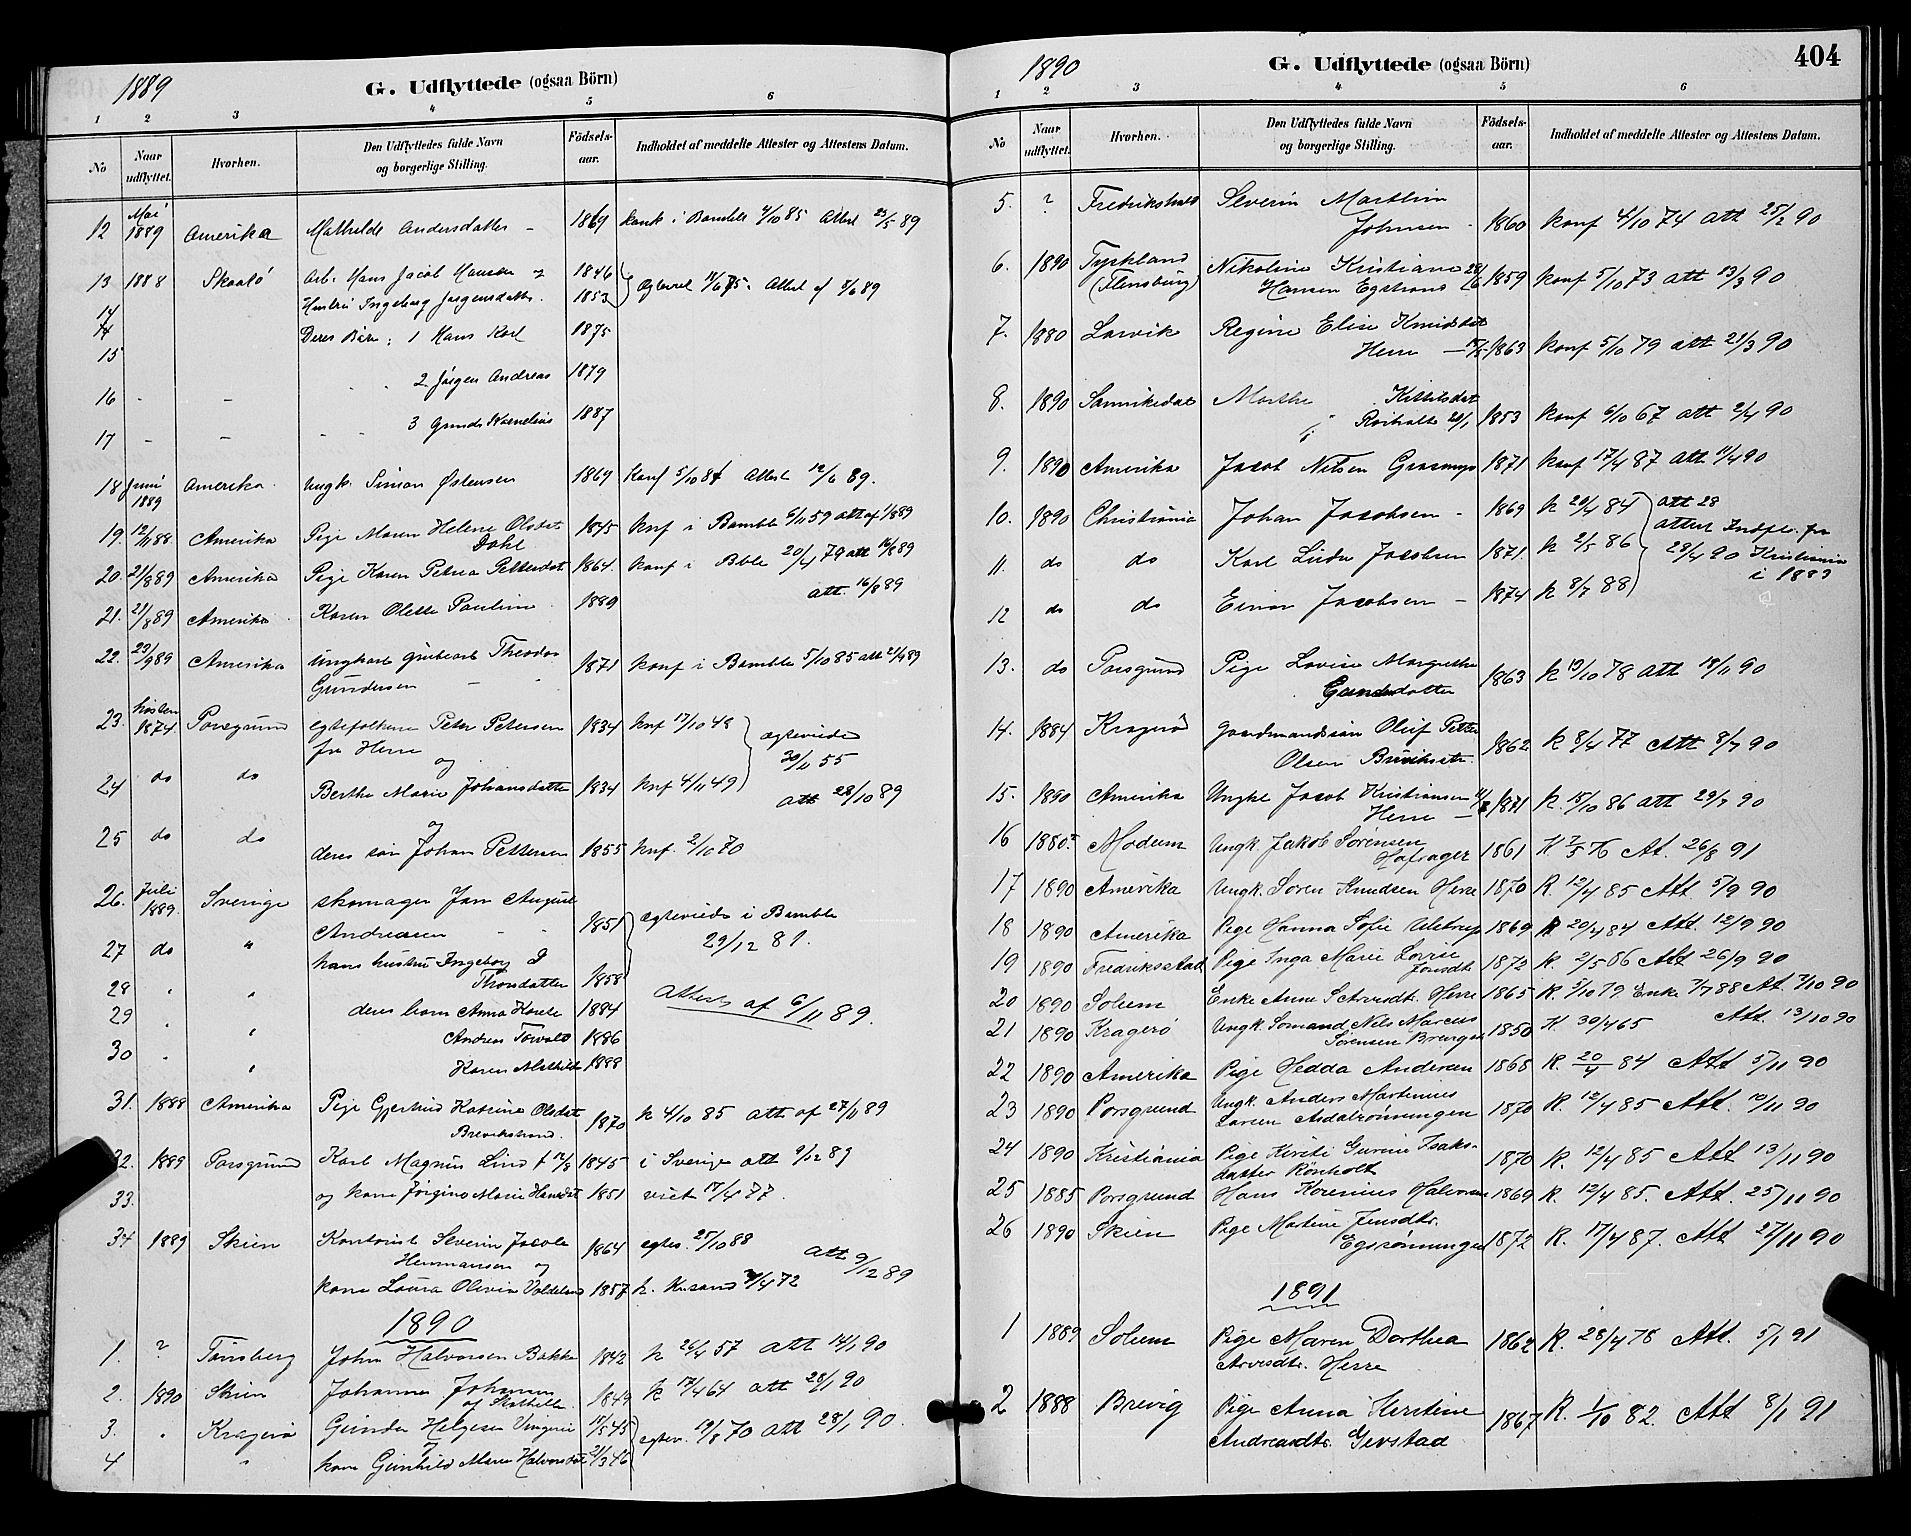 1889
G. Udflyttede (ogsaa Börn)
1 2 3 4 5 6
No
Naar udflyttet.
Hvorhen.
Den Udflyttedes fulde Navn og borgerlige Stilling.
Födsels-aar.
Indholdet af meddelte Attester og Attestens Datum.
12 Mai 1889 Amerika Mathilde Andersdatter - 1869 konf i Bamble 4/10 85 Attest 23/5 89
13 1888 Skaatö Arb. Hans Jacob Hansen og 1846
14 Hustru Ingeborg Jørgensdatter. 1853 Attest af 5/6 89
15 Deres Børn: 1 Hans Karl 1875
16 - - 2. Jørgen Andreas 1879
17 - - 3 1887
18 Juni 1889 Amerika. Ungk. Simon Østensen 1869 Konf 5/10 84 Attest 12/6 89.
19. 12/11 88. Amerika Pige Maren Helene Olsdat Dahl 1845 knf i Bamble 6/11 59 att af 1/8 89
20. 21/8 89 Amerika Pige Karen Petrea Pettersdat 1864. konf i Bble 20/4 79 att 16/8 89
21. 21/8 89 Amerika. Karen Olette Pauline 1889 att. 16/8 89
22. 23/9 89 Amerika Ungkarl Theodor Gundersen 1871 konf i Bamble 5/10 85 att 21/9 89
23. høsten 1874. Porsgrund egtefolkene Peter Petersen fra Herre og 1834 knf 17/10 48
24 do do Berthe Marie Johansdatter 1834 knf 4/11 49 egteviede 30/11 55 att 28/10 89
25 do do og deres søn Johan Pettersen 1855 knf. 2/10 70
26. Juli 1889. Sverige skomager Jan August Andreasen 1851 egteviede i Bamble 29/12 81.
27 do " hans hustru Ingeborg
28 " " Thorsdatter 1858
29 " " deres børn Anna 1884 Attest af 6/11 89.
30 " " Andreas Torvald 1886
Karen Mathilde 1888
31. 1888 Amerika Pige Gjertrud Katrine Olsdat Brevikstrand. 1870 k 4/10 85 att af 27/11 89
32. 1889 Porsgrund Karl Magnus Lind f 12/8 1845 i Sverige att 9/12 89
33. og kone Jørgine Marie Hansdat 1851 viet 17/4 77.
34 1889 Skien Kontorist Severin Jacob Hermansen og 1864 egtev. 25/10 88 att 9/12 89
kone Laura Olivia 1857 k. Krsand 7/4 72
1890
1. ? Tønsberg John Halvorsen Bakke 1842 k 26/4 57 att 14/1 90
2. 1890 Skien Johanne Johansen 1849 k 17/4 64 att 28/1 90
3. " Kragerø Gunder Helgesen 11/5 45 egtev. 19/8 70 att 28/1 90.
4 " kone Gunhild Marie Halvorsdat 21/3 46
1890
G. Udflyttede (ogsaa Börn)
404
1 2 3 4 5 6
No
Naar udflyttet.
Hvorhen.
Den Udflyttedes fulde Navn og borgerlige Stilling.
Födsels-aar.
Indholdet af meddelte Attester og Attestens Datum.
5. ? Fredrikshald Severin Marthin Johnsen - 1860 konf 4/10 74 att 25/2 90
6. 1890 Tyskland (Flensburg) Nikoline Kristiane Hansen Egstrand 1859 konf 5/10 73 att 13/3 90
7. 1880 Larvik Regine Elise Knudsdat Herre 1863 konf 5/10 79 att 21/3 90
8. 1890 Sannikedal Marthe Kittilsdat 1853 konf 6/10 67 att 2/4 90
9. 1890 Amerika Jacob Nilsen 1871 konf 17/4 87 att 11/4 90
10. 1890 Christiania Johan Jacobsen - 1869 k 20/4 84 att 28
11. do do Karl Jacobsen 1871. k 2/5 86 attest Indfl. fra 29/4 90 Kristiania i 1883
12 do do Einar Jacobsen - 1874 k 8/7 88
13. do Porsgrund Pige Lovise Margrethe Gundersdatter 1863 k 13/10 78 att 18/11 90
14. 1884 Kragerø gaardmandssøn Oluf Petter Olsen 1862 k 8/4 77 att 8/7 90
15. 1890 Amerika Ungkl Jacob Kristiansen Herre 1871 k. 18/10 86 att 29/7 90
16 1880? Modum Ungk. Jakob Sørensen Hafsager 1861 K 7/5 76 At. 26/8 91
17 1890 Amerika Ungk. Søren Knudsen Herre 1870 K. 12/4 85 Att 5/9 90
18 1890 Amerika Pige Hanna Sofie Ulstrup 1869 K 20/4 84 Att. 12/9 90
19 1890 Fredriksstad Pige Inga Marie Lovise Jonsdt. 1872 K. 2/5 86 Att 26/9 90
20 1890 Solum Enke Anne S Arvesdt. Herre 1865 K. 5/10 79 Enke 7/7 88 At. 7/10 90
21 1890 Kragerö Ungk. Sømand Nils Marcus Sørensen 1850 K 30/4 65 Att. 13/10 90
22 1890 Amerika Pige Hedda Andersen 1868 K. 20/4 84 Att 5/11 90
23 1890 Porsgrund Ungk. Anders Martinius Larsen Asdalrønningen 1870 K. 12/4 85 Att. 10/11 90
24 1890 Kristiania Pige Kirsti Gurine Isaksdatter Rønholt 1870 K. 12/4 85 Att 13/11 90
25 1885 Porsgrund Hans Korenius Halvorsen 1869 K. 12/4 85. Att. 25/11 90
26 1890 Skien Pige Martine Jensdtr. Egsrønningen 1872 K. 17/4 87. Att 27/11 90
1891
1 1889 Solum Pige Maren Dorthea Arvesdt. Herre 1862 K. 28/4 78 Att. 5/1 91
2 1888 Brevig Pige Anna Kirstine Andreasdtr. Gjerstad 1867 K. 1/10 82. Att 8/1 91